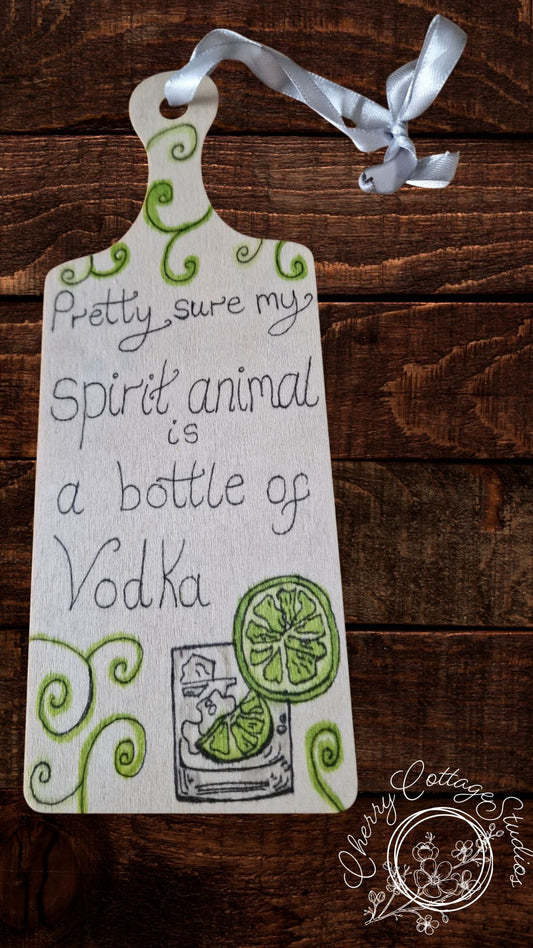 Pretty sure my
spirit animal
is
a bottle of
Vodka
Cherry Cottage Studios